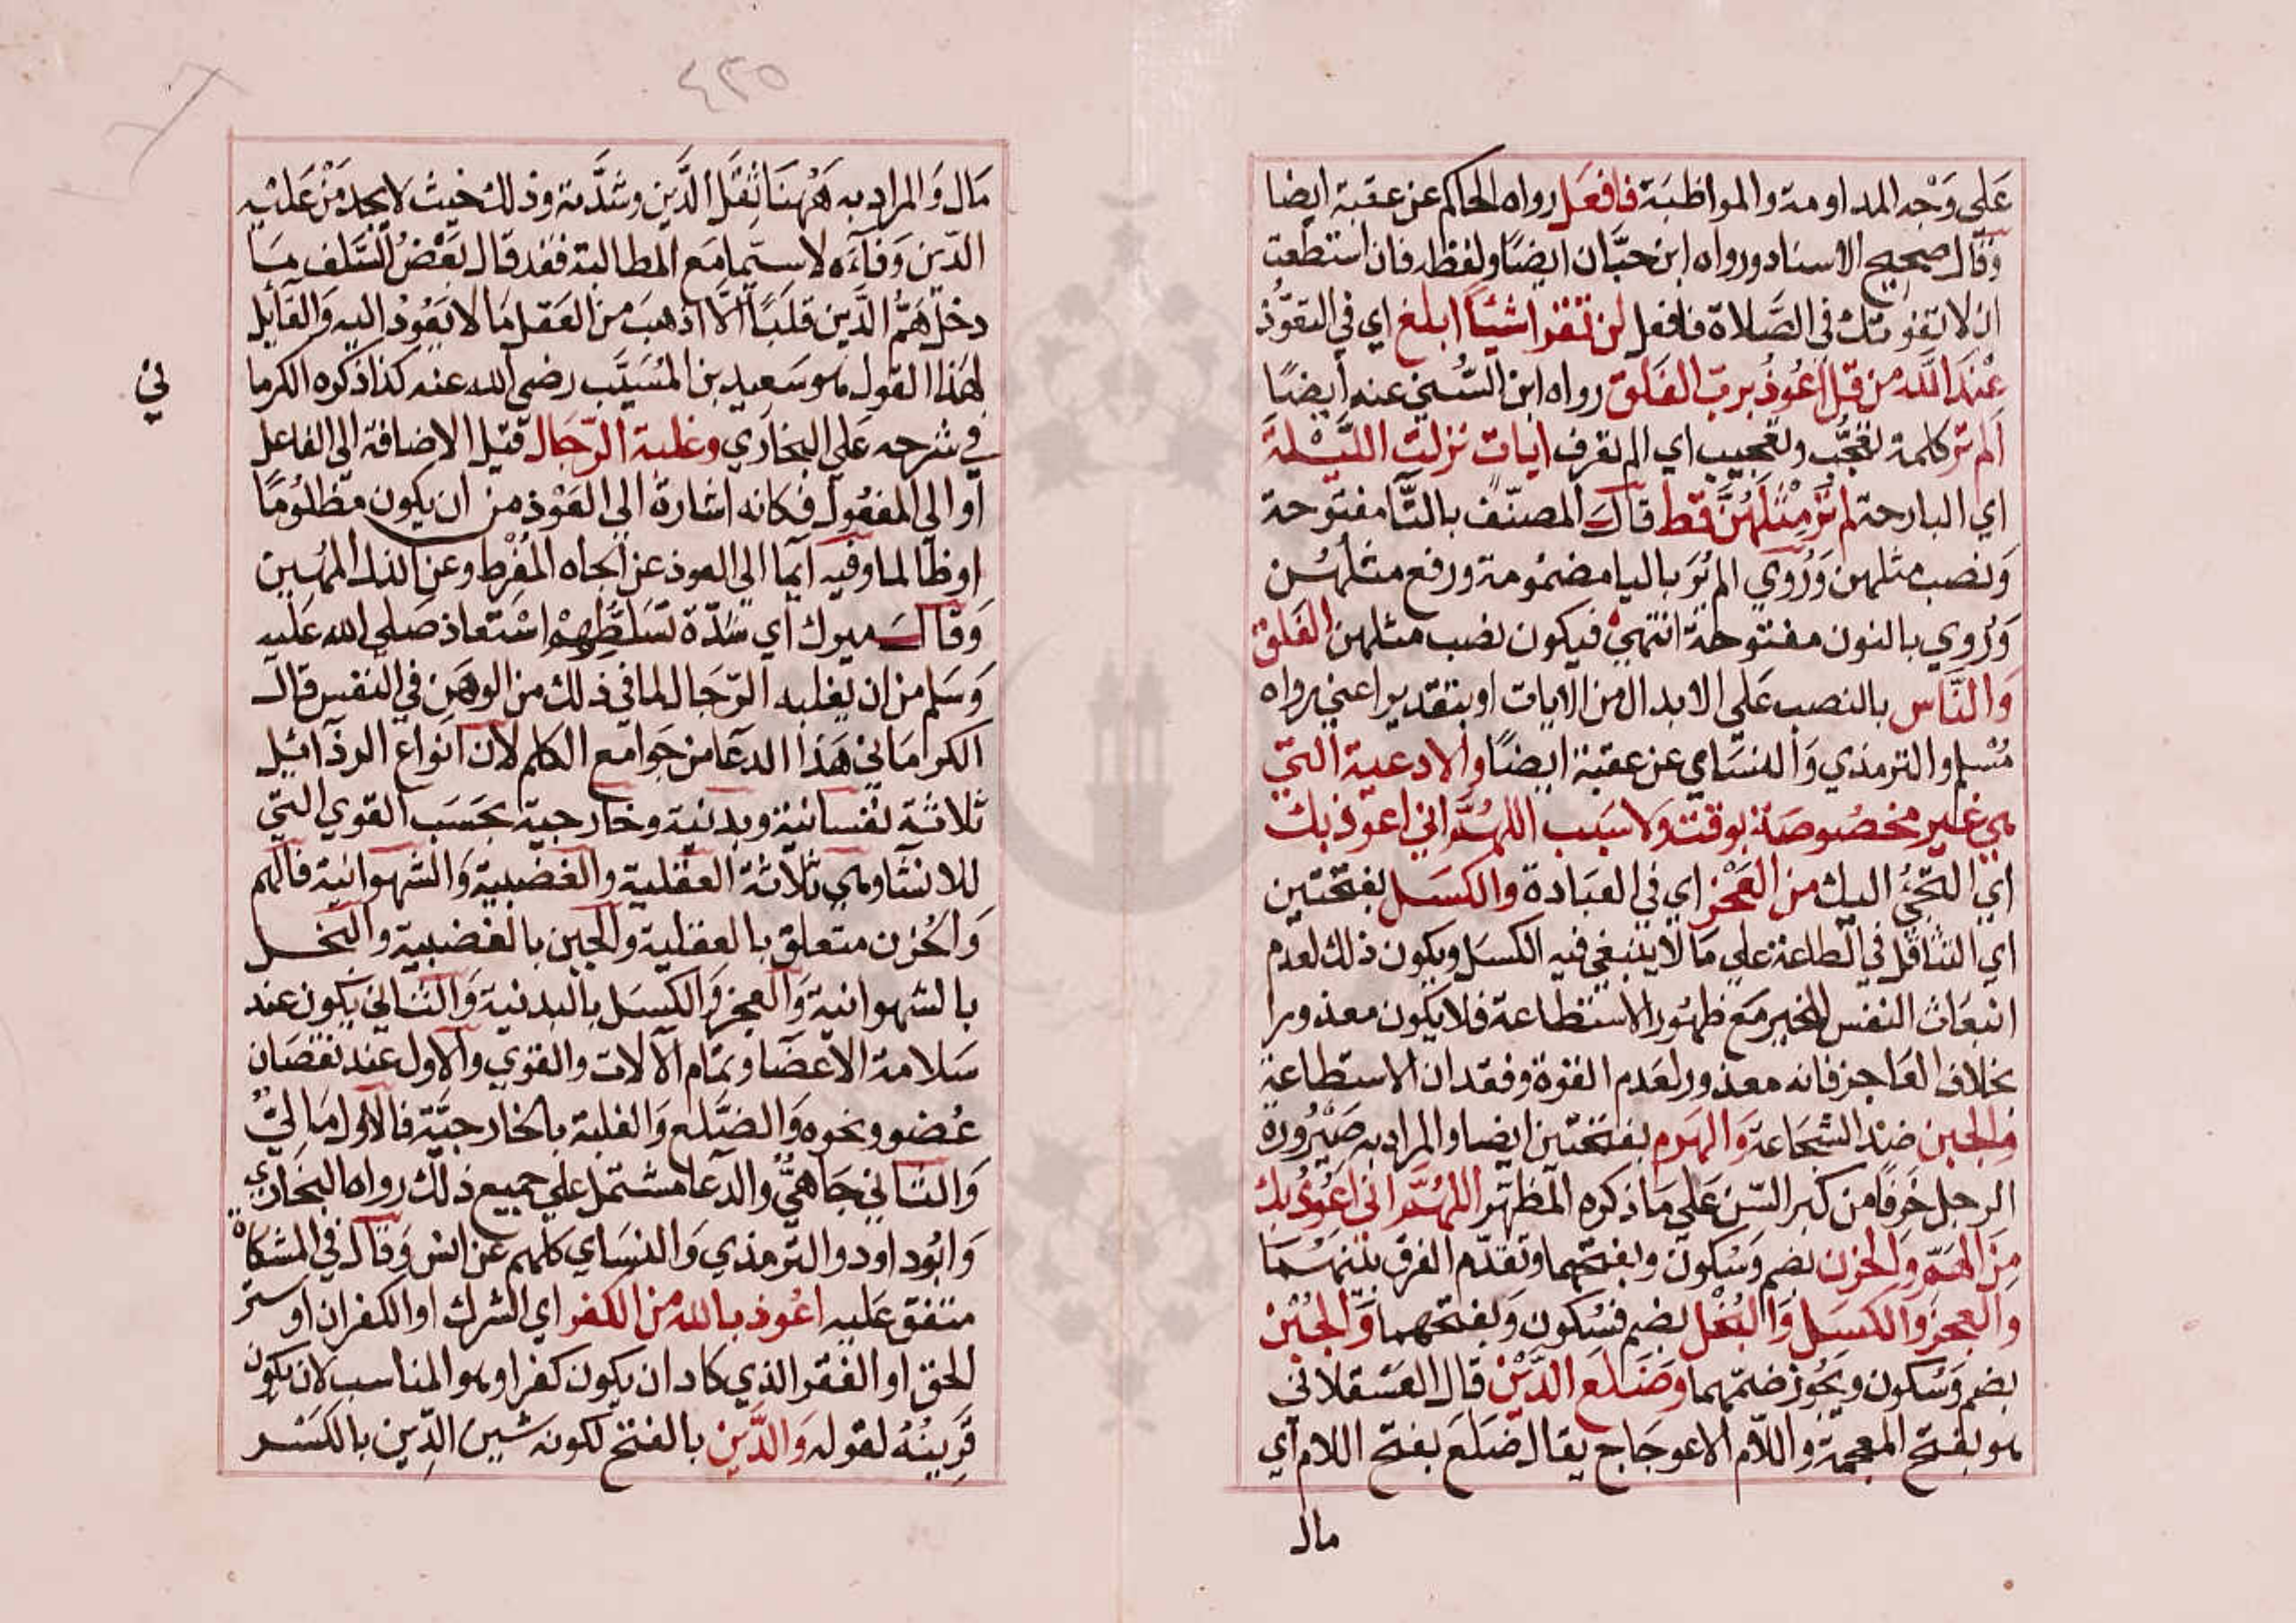 عَلى وَجْه المداومة والمواظبَة فافعَل رواه الحاكم عن عقبة ايضا
وقال صحيح الاسناد ورواه ابن حبَّان ايضًا ولفظه فان استطعت
ان لا تفوتك في الصَّلاة فافعل لن تقرا شيئًا ابلغ اي في التعوُّذ
عِنْدَ اللَّه من قل اعُوذُ بربّ الفَلق رواه ابن السُّني عنه أيضًا
الم تر كلمة تعجُّب وتعجيب اي الم تعرف ايات نزلت اللَّيْلَةَ
اي البارحة لم تُرَ مِثْلَهُنَّ قط قال المصنّف بالتَّا مفتوحة
وَنصب مثلهن وَرُوي الم يُرَ بالياء مضمُومة ورفع مثلهُن
وَرُوي بالنون مفتوحة انتهي فيكون نصب مثلهن الفَلق
وَالنَّاس بالنصب عَلي الابدال من الايات او بتقدير اعني رواه
مُسْلم والترمذي وَالنسَاي عن عقبة ايضًا والادعية التي
هي غير مخصُوصة بوقت ولا سبب اللهُمَّ اني اعوذ بك
اي التجئُ اليك من العَجْز اي في العبَادة والكسَل بفتحتين
اي التثاقل في الطاعة علي مَا لا ينبغي فيه الكسَل ويكون ذلك لعدم
انبعَاث النفس للخير مَعَ ظهُور الاستطاعة فلا يكون معذورا
بخلاف العَاجز فانه معذور لعَدم القوة وفقدان الاستطاعة
والجبن ضد الشجَاعة وَالهرَم بفتحتين ايضا والمراد به صَيْرُورة
الرجل خَرفًا من كبر السّن عَلي مَا ذكره المظهّر اللهُمَّ اني اعُوذُ بك
مِنَ الهَمّ وَالحزن بضم وَسُكون وبفتحهما وتقدّم الفرق بَيْنَهُمَا
والعجز والكسَل وَالبُخْل بضم فسُكون وَبفتحهما وَالجُبْن
بضم وَسُكون ويجُوز ضمّهما وضَلع الدَّيْن قال العَسْقلاني
هو بفتح المعجمة واللّام الاعوجَاج يقال ضلَعَ بفتح اللام أي
مال
٤٢٥
مَال وَالمراد به هٰهُنَا ثِقَل الدَّين وشدَّته وذلك حَيث لا يجد مَنْ عَليْه
الدّين وَفاءَه لا سيَّما مَع المطالبة فقد قال بَعْضُ السَّلف مَا
دخل هَمُّ الدَّين قلبًا الّا اذهبَ من العَقل مَا لا يَعُودُ اليه وَالقائل
لهٰذا القول هو سَعيد بن المُسَيَّب رضي الله عنه كذا ذكره الكرما
ني
في شرحه عَلي البخاري وغلبة الرّجَال قيل الاضافة الي الفاعل
او الي المفعُول فكانه اشارة الي العَوْذ من ان يكون مظلُومًا
او ظالما وفيه ايما الي العوذ عن الجاه المُفْرط وعن الذل المُهين
وَقال ميرك اي شدّة تسَلّطهِمْ استعاذ صَلي الله عليه
وَسَلم من ان يَغلبه الرّجَال لما في ذلك من الوهن في النفس قال
الكرمَاني هَذا الدعَا من جَوامع الكلم لان انواع الرذائل
ثلاثة نفسانية وبدنية وخارجية بحَسَب القوي التي
للانسَان وهي ثلاثة العَقلية والغضبية وَالشهوانية فالهم
وَالحُزن متعلق بالعقلية والجبن بالغضبية والبخل
بالشهوانية وَالعجز وَالكسَل بالبدنية وَالثاني يكون عند
سَلامة الاعضَا وتمَام الالات والقوي والاول عند نقصَان
عُضو ونحوه وَالضلع وَالغلبة بالخارجيَّة فالاول مَاليٌّ
وَالثاني جَاهيٌّ والدعا مشتمل علي جميع ذلك رواه البخَاري
وَابُو داود والترمذي وَالنسَاي كلهم عن انس وَقال في المشكاة
متفق عَليه اعُوذ بالله من الكفر اي الشرك او الكفران او ستر
الحق او الفقر الذي كاد ان يكون كفرا وهو المناسب لان يكون
قَرِينُهُ لقوله وَالدَّين بالفتح لكونه شين الدِّين بالكَسْر